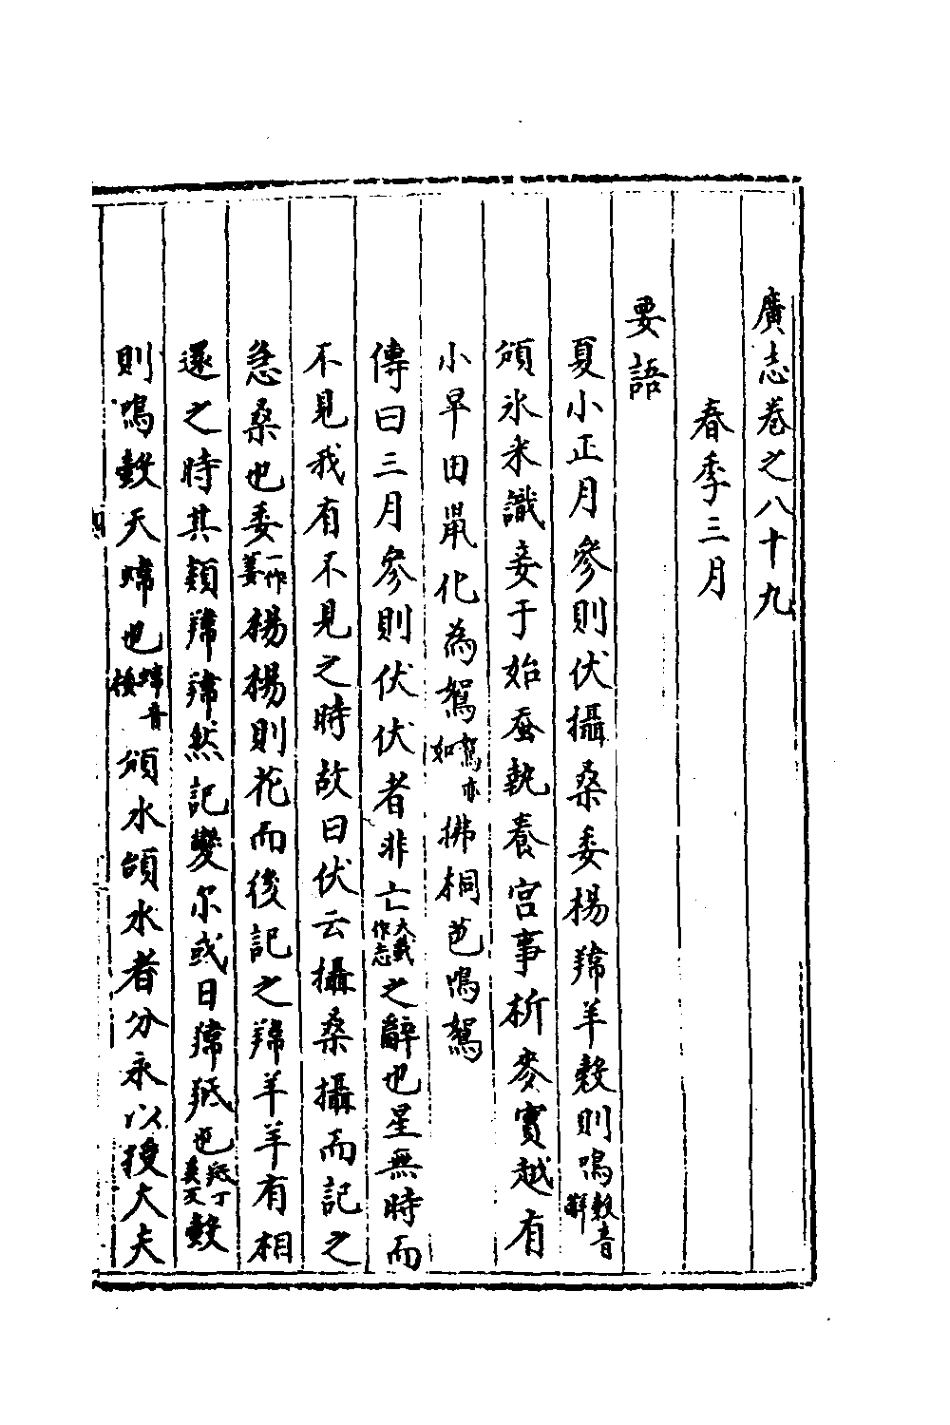 廣志卷之八十九
春季三月
要語
夏小正月參則伏攝桑委楊羵羊縠則鳴縠音斛
頒氷采識妾于始蚕執養宮事析麥實越有
小旱田鼠化為鴽鴽亦如拂桐芭鳴鴽
傳曰三月參則伏伏者非亡大戴作忘之辭也星無時而
不見我有不見之時故曰伏云攝桑攝而記之
急桑也委一作萎楊楊則花而後記之羵羊羊有相
還之時其類羵羵然記變尔或曰羵羝也羝丁奚文縠
則鳴縠天螻也螻音樓頒氷頒氷者分氷以授大夫